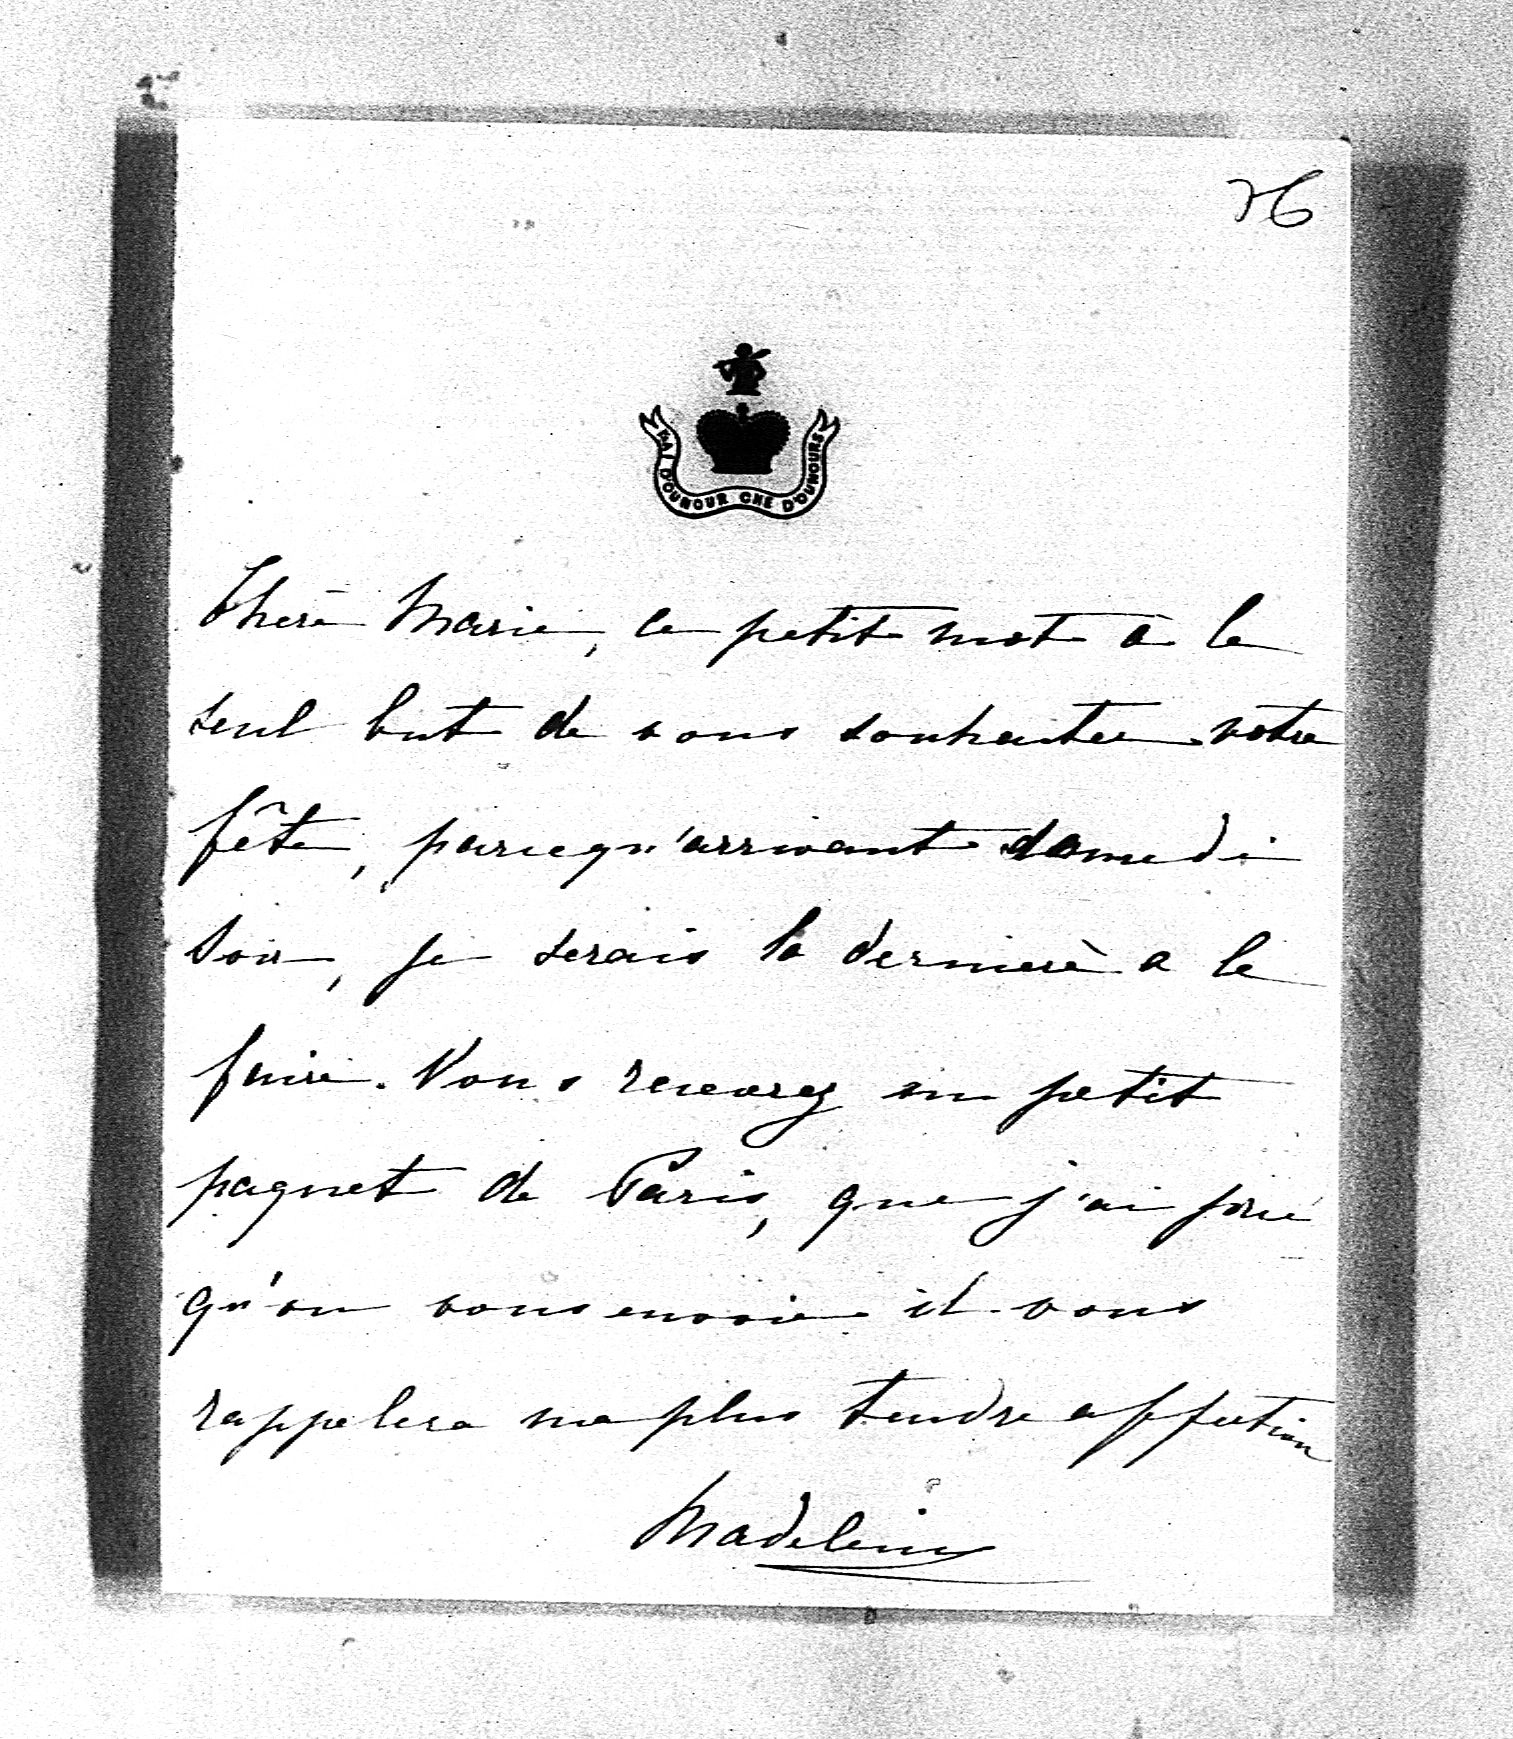 76
FAI D'OUNOUR CHE D'OUNOURS
Chère Marie, ce petit mot a le
seul but de vous souhaiter votre
fête, parcequ'arrivant samedi
soir, je serais la dernierè a le
faire. Vous recevrez un petit
paquet de Paris, que j'ai prié
qu'on vous envoie il vous
rappelera ma plus tendre affection
Madeleine